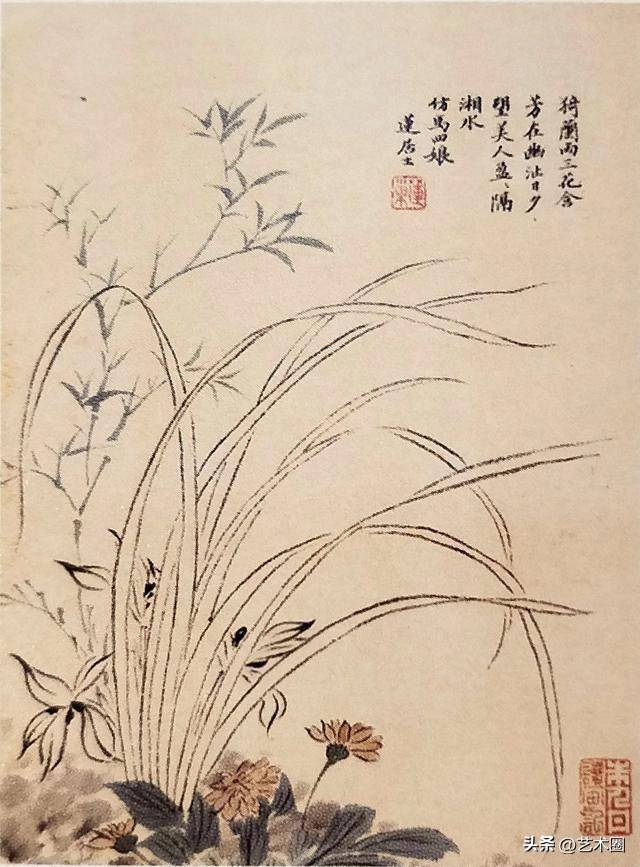 猗蘭兩三花含
芳在幽沚日夕、
望美人盈、隔
湘水
仿馬四娘
蓮居士
头条 @艺术圈